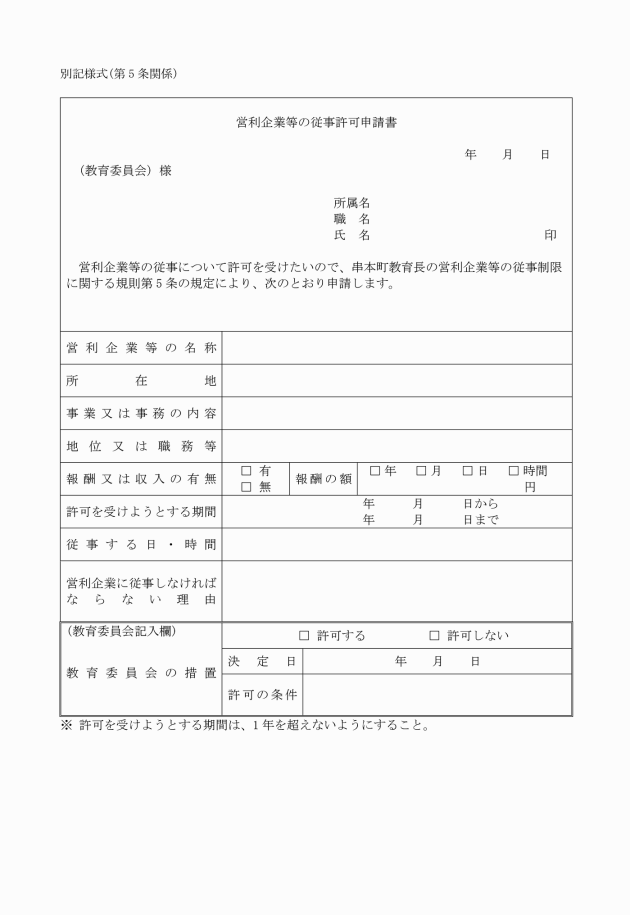 別記様式(第5条関係)
営利企業等の従事許可申請書
年　月　日
（教育委員会）様
所属名
職　名
氏　名　印
営利企業等の従事について許可を受けたいので、串本町教育長の営利企業等の従事制限
に関する規則第5条の規定により、次のとおり申請します。
営利企業等の名称
所在地
事業又は事務の内容
地位又は職務等
報酬又は収入の有無
□ 有
□ 無
報酬の額
□年　□月　□日　□時間
円
許可を受けようとする期間
年　月　日から
年　月　日まで
従事する日・時間
営利企業に従事しなければ
ならない理由
（教育委員会記入欄）
教育委員会の措置
□ 許可する　□ 許可しない
決定日
年　月　日
許可の条件
※ 許可を受けようとする期間は、1年を超えないようにすること。